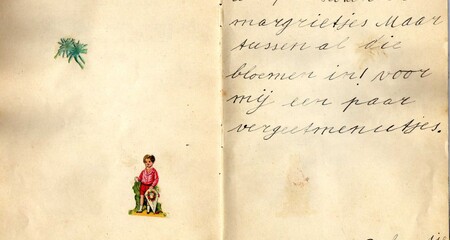 margrietjes Maar
tussen al die
bloemen in! voor
mij een paar
vergeetmenietjes.